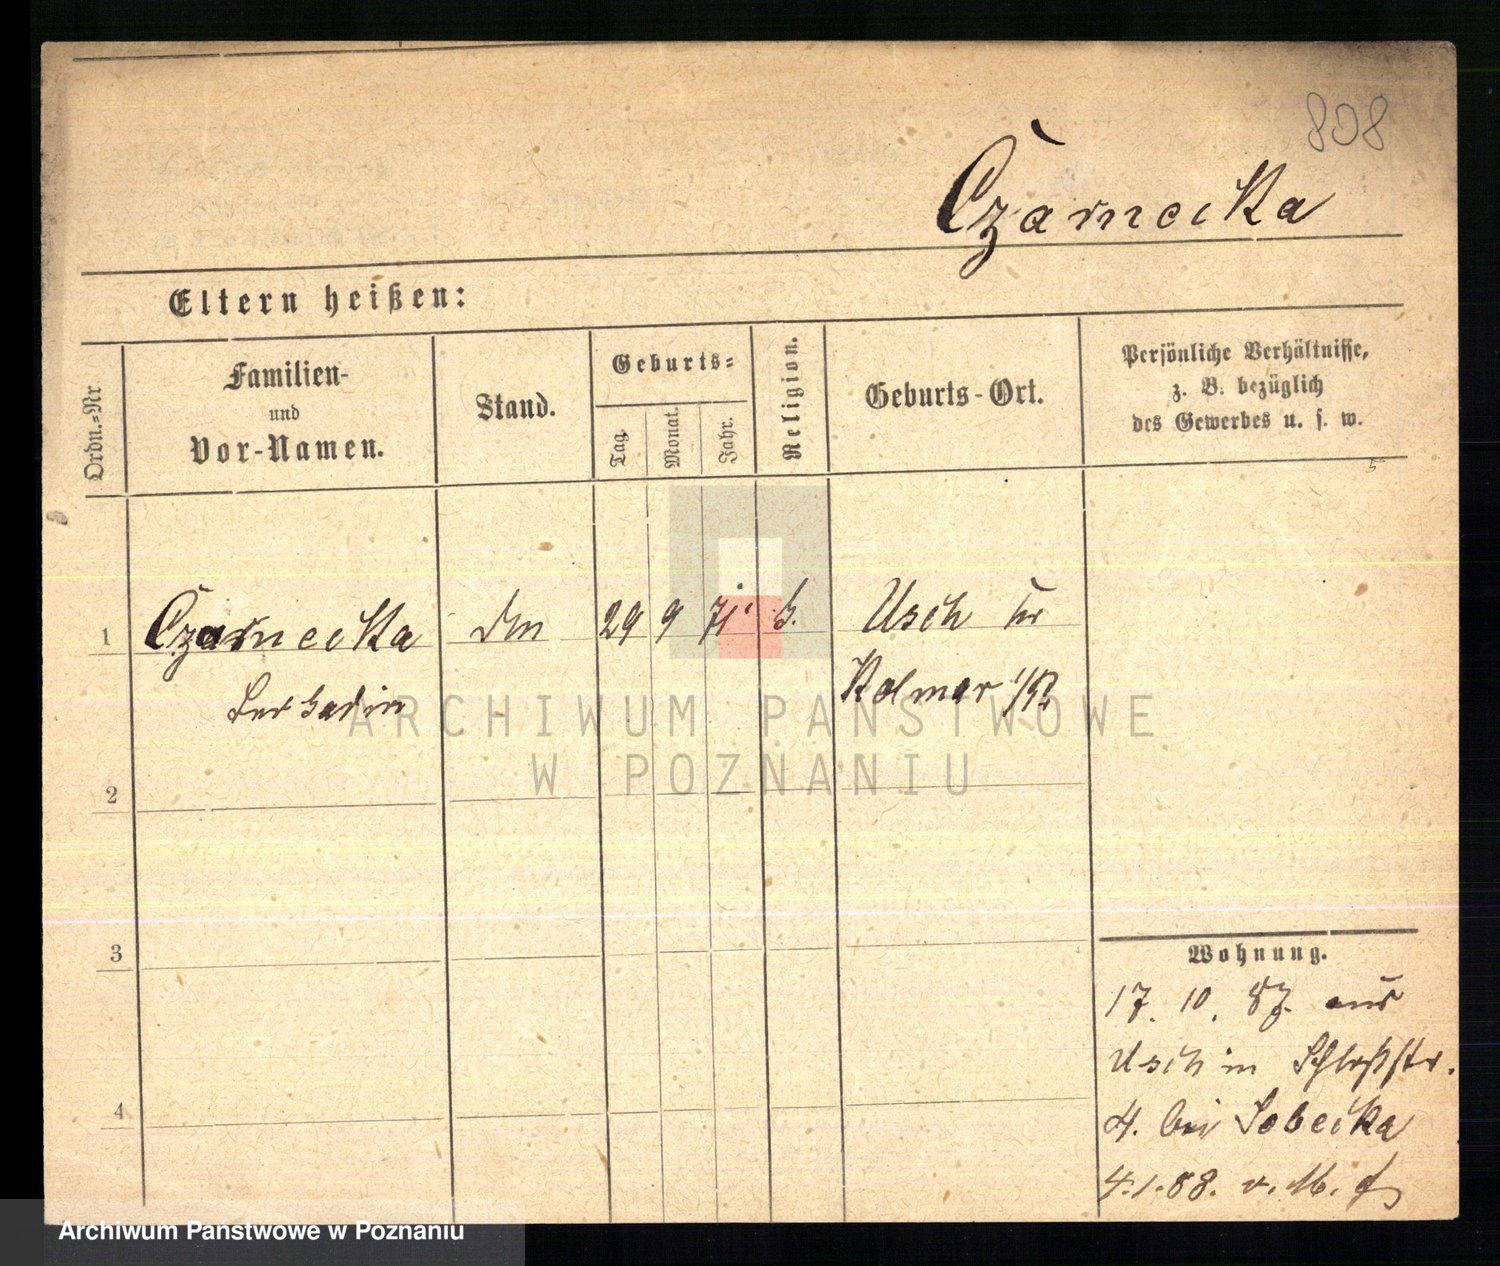 808
Czarnecka
Eltern heißen:
Ordn.-Nr
Familien-
und
Vor-Namen.
Stand.
Geburts-
Tag.
Monat.
Jahr.
Religion.
Geburts-Ort.
Persönliche Verhältnisse,
z. B. bezüglich
des Gewerbes u. s. w.
1 Czarnecka 29 9 71 Usch
Kolmar
2
3
4
Wohnung.
17. 10. 87. aus
Usch in Schloßstr.
4. bei Sobecka
4.1.88. v. M.
ARCHIWUM PAŃSTWOWE
W POZNANIU
Archiwum Państwowe w Poznaniu